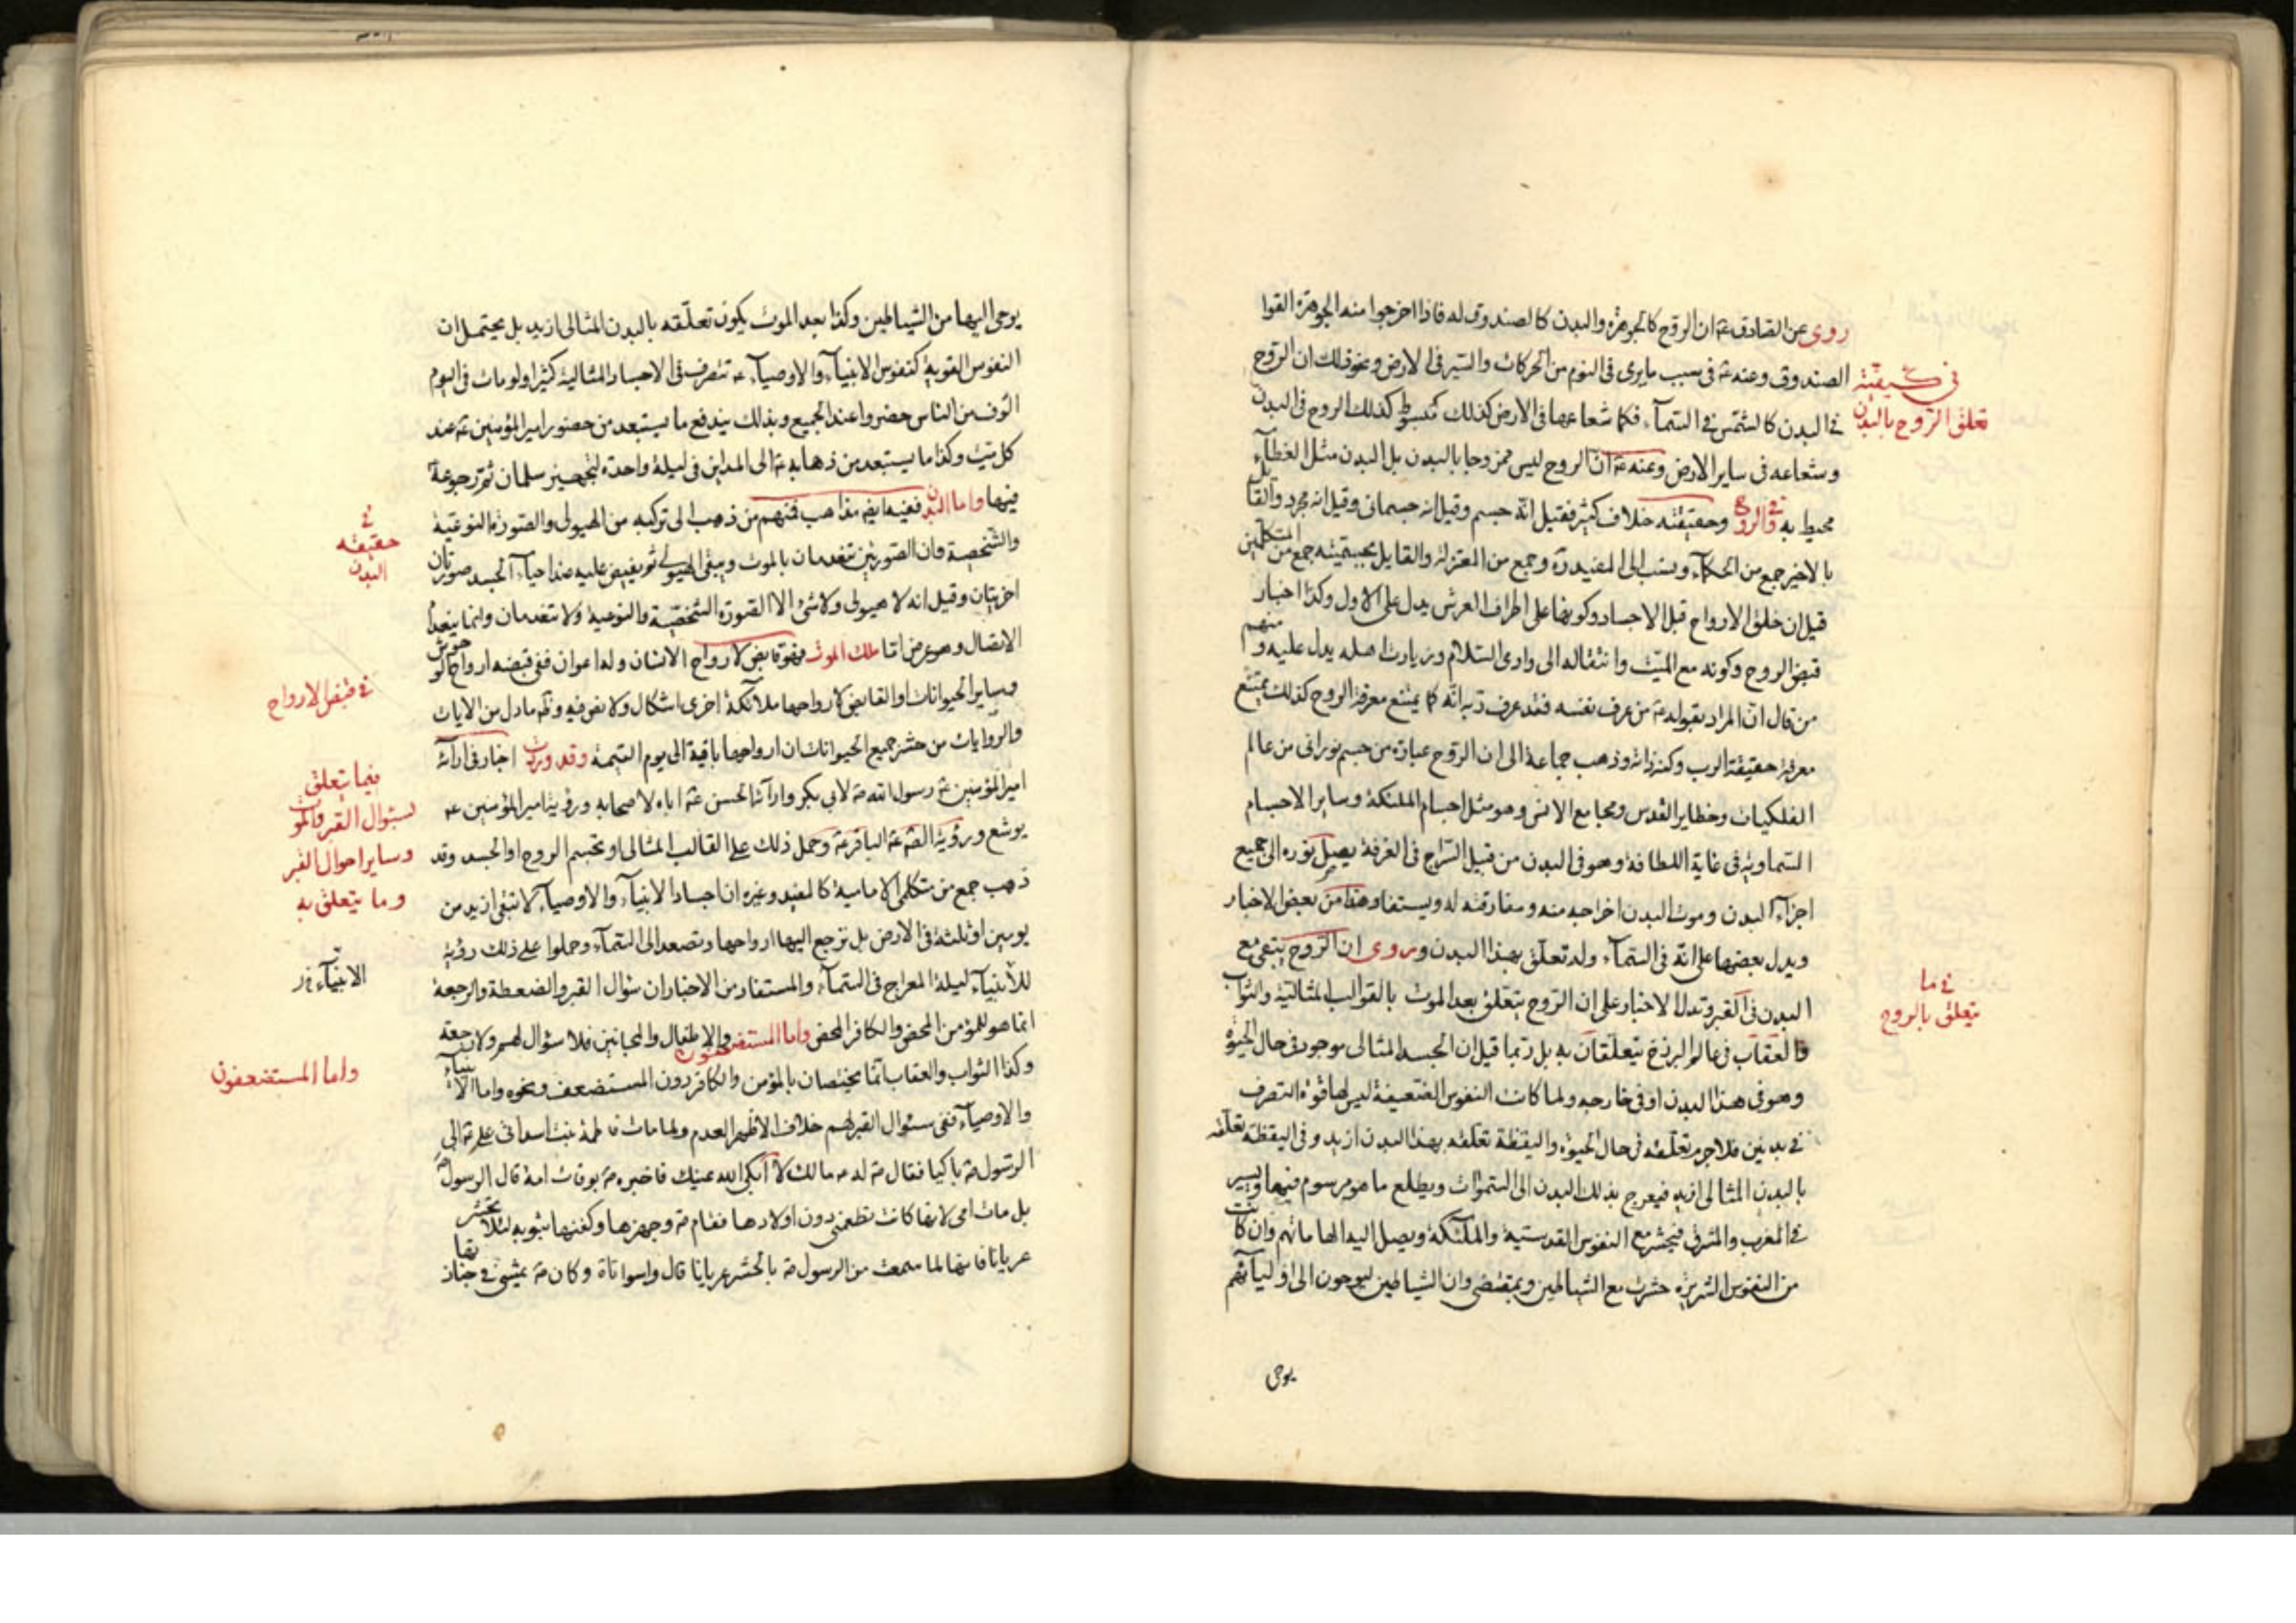 روى عن الصادق ع ان الروح كالجوهرة والبدن كالصندوق له فاذا اخرجوا منه الجوهرة القوا
الصندوق وعنه ع فى سبب ما يرى فى النوم من الحركات والسير فى الارض ونحو ذلك ان الروح
فى البدن كالشمس فى السمآء فكما شعاعها فى الارض كذلك كذلك الروح فى البدن
وشعاعه فى ساير الارض وعنه ع ان الروح ليس ممزوجا بالبدن بل البدن مثل الغطآء
محيط به وفى الروح وحقيقته خلاف كثير فقيل انه جسم وقيل انه جسمانى وقيل انه مجرد والقائل
بالاخير جمع من الحكمآء ونسب الى المفيد ره وجمع من المعتزلة والقايل بجسميته جمع من المتكلمين
قيل ان خلق الارواح قبل الاجساد وكونها على اطراف العرش يدل على الاول وكذا اخبار
قبض الروح وكونه مع الميت وانتقاله الى وادى السلام وزيارت اهله يدل عليه ومنهم
من قال ان المراد بقوله ع من عرف نفسه فقد عرف ربه انه كما يمتنع معرفة الروح كذلك يمتنع
معرفة حقيقة الرب وكنه ذاته وذهب جماعة الى ان الروح عبارة من جسم نورانى من عالم
الفلكيات وحظاير القدس ومجامع الانس وهو مثل اجسام الملئكة وساير الاجسام
السماوية فى غاية اللطافة وهو فى البدن من قبيل السراج فى الغرفة يصل نوره الى جميع
اجزآء البدن وموت البدن اخراجه منه ومفارقته له ويستفاد هذا من بعض الاخبار
ويدل بعضها على انه فى السمآء وله تعلق بهذا البدن وروى ان الروح يبقى مع
البدن فى القبر وتدل الاخبار على ان الروح يتعلق بعد الموت بالقوالب المثالية والثواب
والعقاب فى عالم البرزخ يتعلقان به بل ربما قيل ان الجسد المثالى موجود فى حال الحيوة
وهو فى هذا البدن او فى خارجه ولما كانت النفوس الضعيفة ليس لها قوة التصرف
فى بدنين فلا جرم تعلقه فى حال الحيوة واليقظة تعلقه بهذا البدن ازيد وفى اليقظة تعلقه
بالبدن المثالى ازيد فيعرج بذلك البدن الى السموات ويطلع ما هو مرسوم فيها ويسير
فى المغرب والمشرق فيحشر مع النفوس القدسية والملئكة ويصل اليه الهاماتهم وان كانت
من النفوس الشريرة حشرت مع الشياطين وبمقتضى وان الشياطين ليوحون الى اوليآئهم
يوحى
فى كيفيّة
تعلق الروح بالبدن
فى ما
يتعلق بالروح
يوحى اليها من الشياطين وكذا بعد الموت يكون تعلقه بالبدن المثالى ازيد بل يحتمل ان
النفوس القوية كنفوس الانبيآء والاوصيآء ع تتصرف فى الاجساد المثالية كثيرا ولو مات فى اليوم
الوف من الناس حضروا عند الجميع وبذلك يندفع ما يستبعد من حضور امير المؤمنين ع عند
كل ميت وكذا ما يستبعد من ذهابه ع الى المداين فى ليلة واحدة لتجهيز سلمان ثم رجوعه
فيها واما البدن ففيه ايضا مذاهب فمنهم من ذهب الى تركبه من الهيولى والصورة النوعية
والشخصية وان الصورتين تنعدمان بالموت ويبقى الهيولى ثم يفيض عليه عند احيآء الجسد صورتان
اخريتان وقيل انه لا هيولى ولا شئ الا الصورة الشخصية والنوعية ولا تنعدمان وانما ينعدم
الاتصال وهو عرض اما ملك الموت فهو قابض لارواح الانسان وله اعوان ففى قبضه ارواح الوحوش
وساير الحيوانات او القابض لارواحها ملائكة اخرى اشكال ولا نص فيه وظ ما دل من الايات
والروايات من حشر جميع الحيوانات ان ارواحها باقية الى يوم القيمة وقد وردت اخبار فى ارآئة
امير المؤمنين ع رسول الله ص لابى بكر وارآئة الحسن ع اباه لاصحابه ورؤية امير المؤمنين ع
يوشع ورؤية الصـ ع الباقر ع وحمل ذلك على القالب المثالى او تجسم الروح او الجسد وقد
ذهب جمع من متكلمى الامامية كالمفيد وغيره ان اجساد الانبيآء والاوصيآء لا تبقى ازيد من
يومين او ثلثة فى الارض بل ترجع اليها ارواحها وتصعد الى السمآء وحملوا على ذلك رؤية
للانبيآء ليلة المعراج فى السمآء والمستفاد من الاخبار ان سؤال القبر والضعطة والرجعة
انما هو للمؤمن المحض والكافر المحض واما المستضعفون والاطفال والمجانين فلا سؤال لهم ولا رجعة
وكذا الثواب والعقاب انما يختصان بالمؤمن والكافر دون المستضعف ونحوه واما الانبيآء
والاوصيآء ففى سئوال القبر لهم خلاف الاظهر العدم ولما مات فاطمة بنت اسد اتى على ع الى
الرسول ص باكيا فقال ص له ما لك لا ابكى الله عينك فاخبره ص بوفات امه قال الرسول ص
بل مات امى لانها كانت تطعمنى دون اولادها فقام ص وجهزها وكفنها بثوبه لئلا يحشر
عريانا فانها لما سمعت من الرسول ص بالحشر عريانا قال واسواتاه وكان ص يمشى فى جنازتها
فى
حقيقة
البدن
فى قبض الارواح
فيما يتعلق
بسئوال القبر والموت
وساير احوال القبر
وما يتعلق به
الانبيآء فى
واما المستضعفون